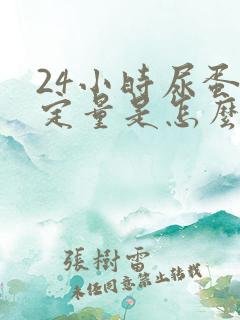 24小時尿蛋
定量是怎麼
張樹雷
未經同意禁止轉載